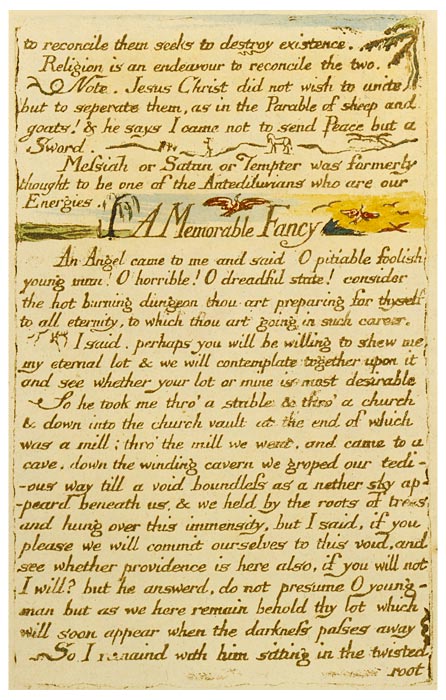 to reconcile them seeks to destroy existence.
Religion is an endeavour to reconcile the two.
Note. Jesus Christ did not wish to unite
but to seperate them, as in the Parable of sheep and
goats! & he says I came not to send Peace but a
Sword.
Meſsiah or Satan or Tempter was formerly
thought to be one of the Antediluvians who are our
Energies.
A Memorable Fancy
An Angel came to me and said O pitiable foolish
young man! O horrible! O dreadful state! consider
the hot burning dungeon thou art preparing for thyself
to all eternity, to which thou art going in such career.
I said. perhaps you will be willing to shew me
my eternal lot & we will contemplate together upon it
and see whether your lot or mine is most desirable
So he took me thro' a stable & thro' a church
& down into the church vault at the end of which
was a mill; thro' the mill we went, and came to a
cave. down the winding cavern we groped our tedi-
-ous way till a void boundleſs as a nether sky ap-
-peard beneath us, & we held by the roots of trees
and hung over this immensity, but I said, if you
please we will commit ourselves to this void, and
see whether providence is here also, if you will not
I will? but he answerd, do not presume O young-
-man but as we here remain behold thy lot which
will soon appear when the darkneſs paſses away
So I remaind with him sitting in the twisted
root